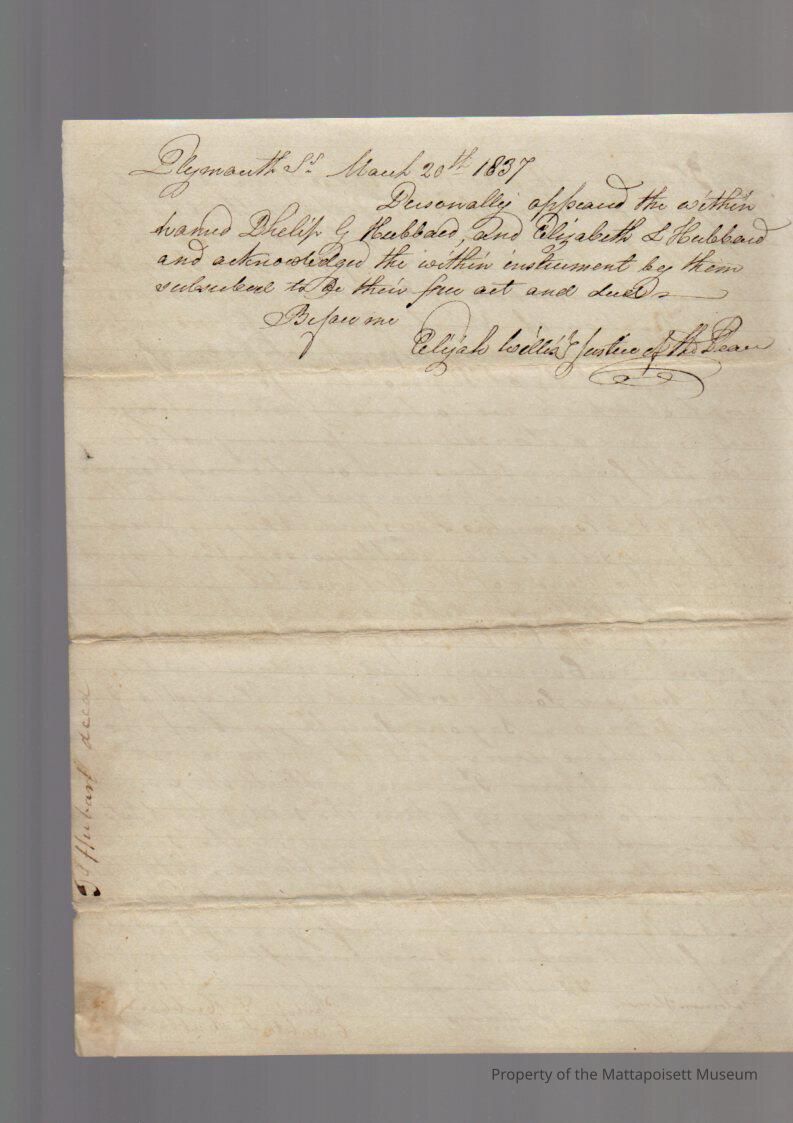 Plymouth Ss. March 20th 1837
Personally appeard the within
named Phelip G Hubbard, and Elizabeth L Hubbard
and acknowledged the within instrument by them
subscribed to Be their free act and deed
Before me
Elijah Willis Justice of the Peace
Hubart deed
Property of the Mattapoisett Museum